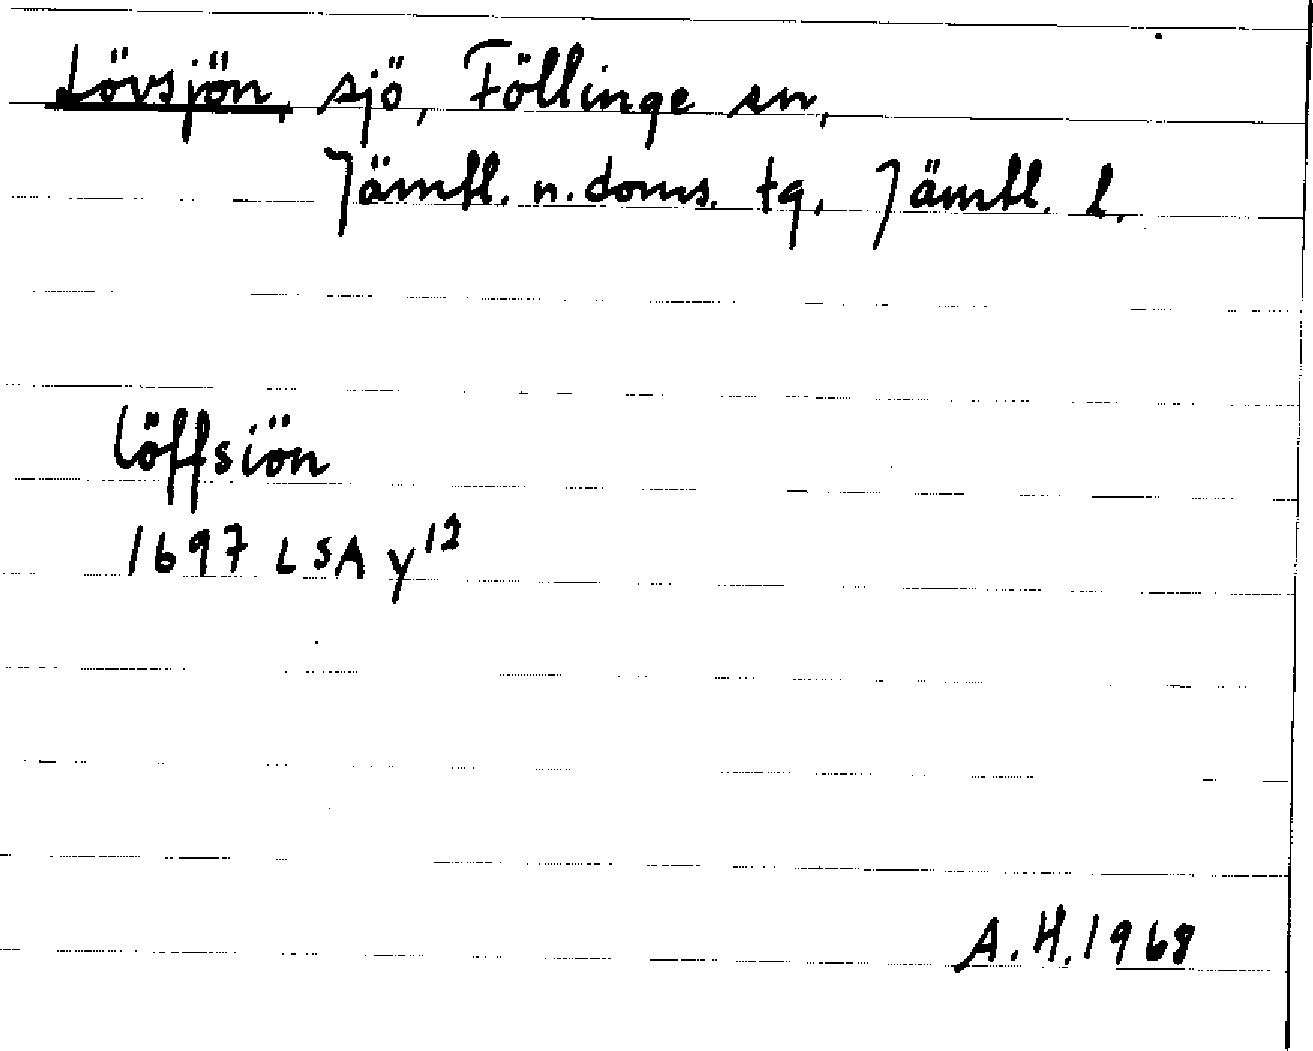 Lövsjön, sjö, Föllinge sn,
Jämtl. n. doms. tg, Jämtl. l.
Löffsiön
1697 LSA y¹²
A.H. 1968